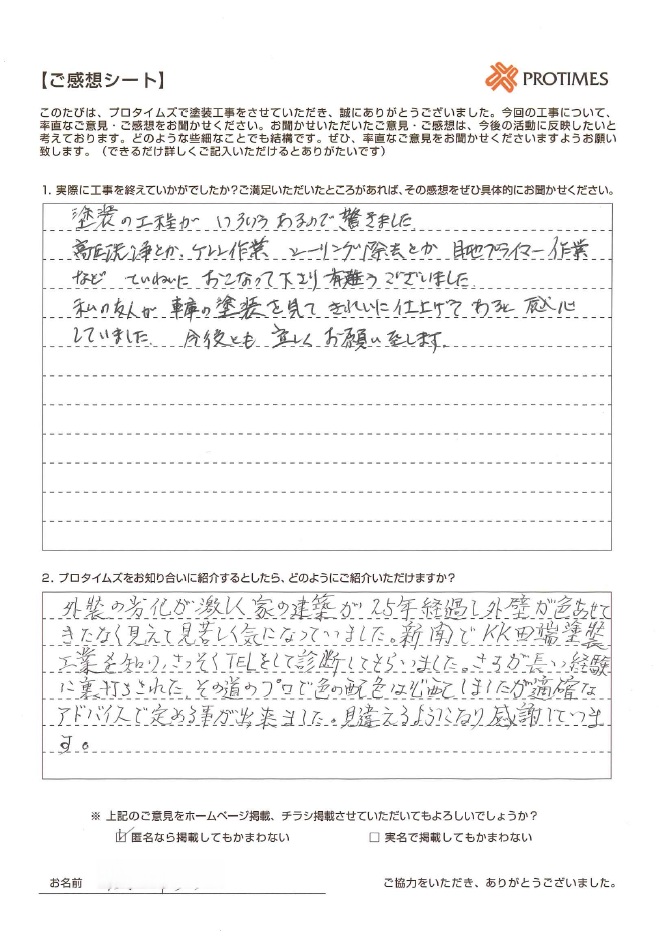 【ご感想シート】
PROTIMES
このたびは、プロタイムズで塗装工事をさせていただき、誠にありがとうございました。今回の工事について、
率直なご意見・ご感想をお聞かせください。お聞かせいただいたご意見・ご感想は、今後の活動に反映したいと
考えております。どのような些細なことでも結構です。ぜひ、率直なご意見をお聞かせくださいますようお願い
致します。（できるだけ詳しくご記入いただけるとありがたいです）
1. 実際に工事を終えていかがでしたか?ご満足いただいたところがあれば、その感想をぜひ具体的にお聞かせください。
塗装の工程が いろいろあるので驚きました
高圧洗浄とか、ケレン作業 シーリング除去とか 目地プライマー作業
など ていねいに おこなって下さり有難うございました
私の友人が 車庫の塗装を見て きれいに仕上げてあると 感心
していました. 今後とも 宜しくお願い致します。
2. プロタイムズをお知り合いに紹介するとしたら、どのようにご紹介いただけますか?
外装の劣化が激しく家の建築が25年経過し外壁が色あせて
きたなく見えて見苦しく気になっていました。新聞でKK田端塗装
工業を知り、さっそくTELをして診断してもらいました。さすが長い経験
に裏打ちされた、その道のプロで色の配色は心配しましたが適確な
アドバイスで定める事が出来ました。見違えるようになり感謝していま
す。
※ 上記のご意見をホームページ掲載、チラシ掲載させていただいてもよろしいでしょうか?
☑ 匿名なら掲載してもかまわない □ 実名で掲載してもかまわない
お名前
ご協力をいただき、ありがとうございました。